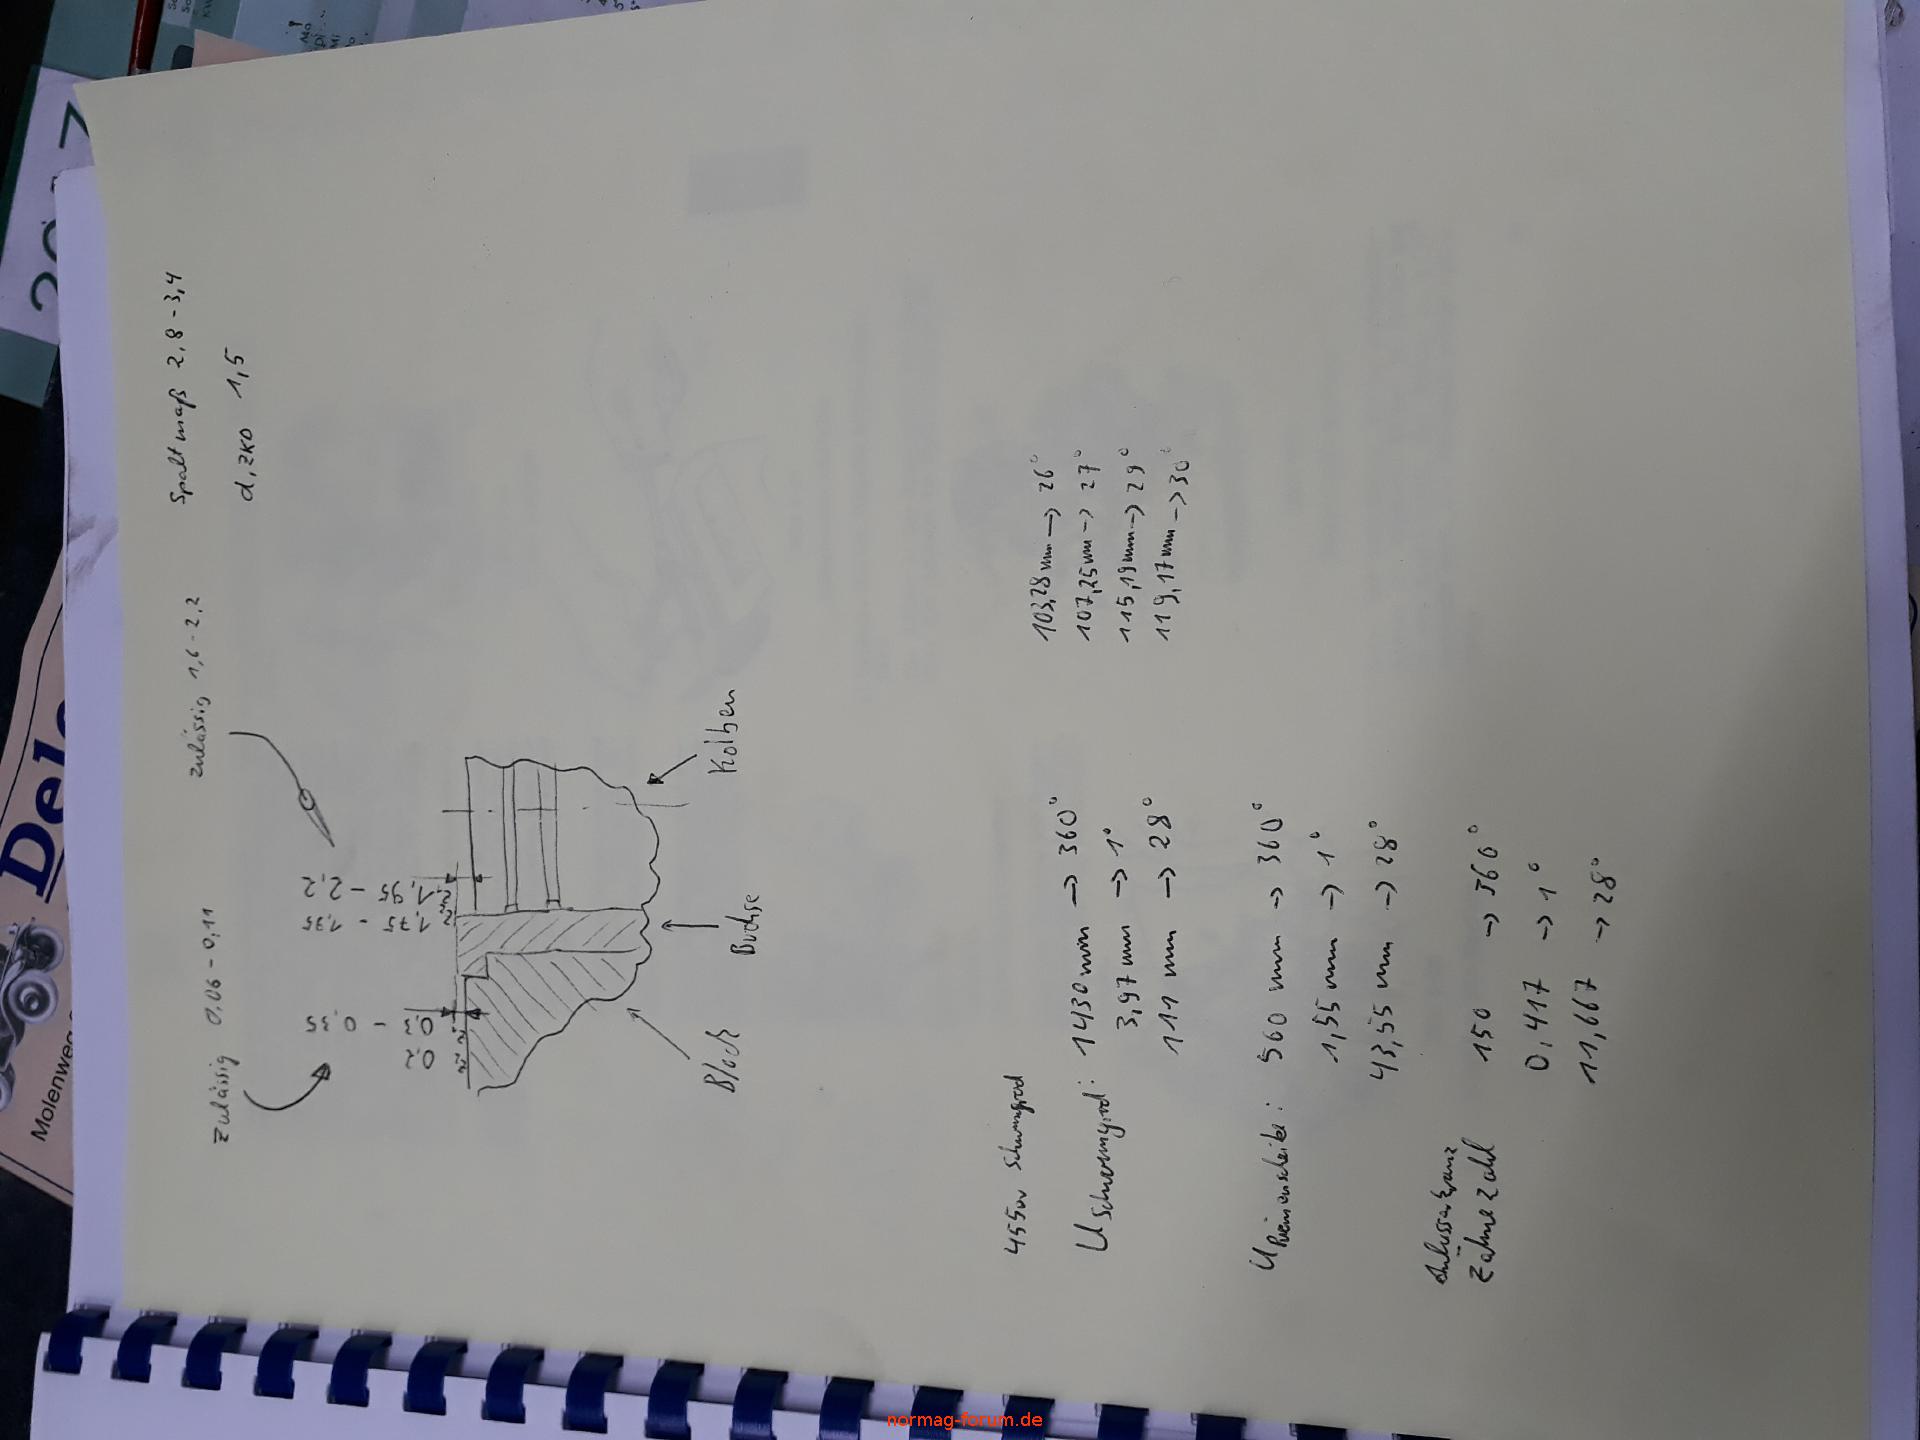 Spaltmaß 2,8 - 3,4
d,zko 1,5
zulässig 1,6 - 2,2
zulässig 0,06 - 0,11
0,2
0,3 - 0,35
1,75 - 1,95
1,95 - 2,2
Block
Buchse
Kolben
Schwungrad
U Schwungrad: 1430 mm -> 360°
3,97 mm -> 1°
111 mm -> 28°
103,28 mm -> 26°
107,25 mm -> 27°
115,19 mm -> 29°
119,17 mm -> 30°
U Riemenscheibe: 560 mm -> 360°
1,55 mm -> 1°
43,55 mm -> 28°
Zähnezahl 150 -> 360°
0,417 -> 1°
11,667 -> 28°
Molenweg
normag-forum.de